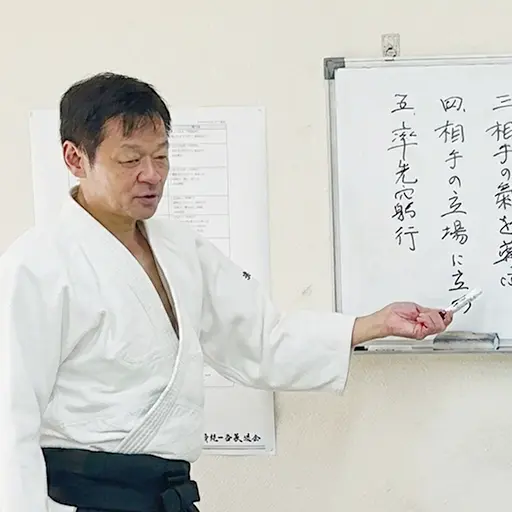 三、相手の氣を尊ぶ
四、相手の立場に立つ
五、率先窮行
統一合氣道会